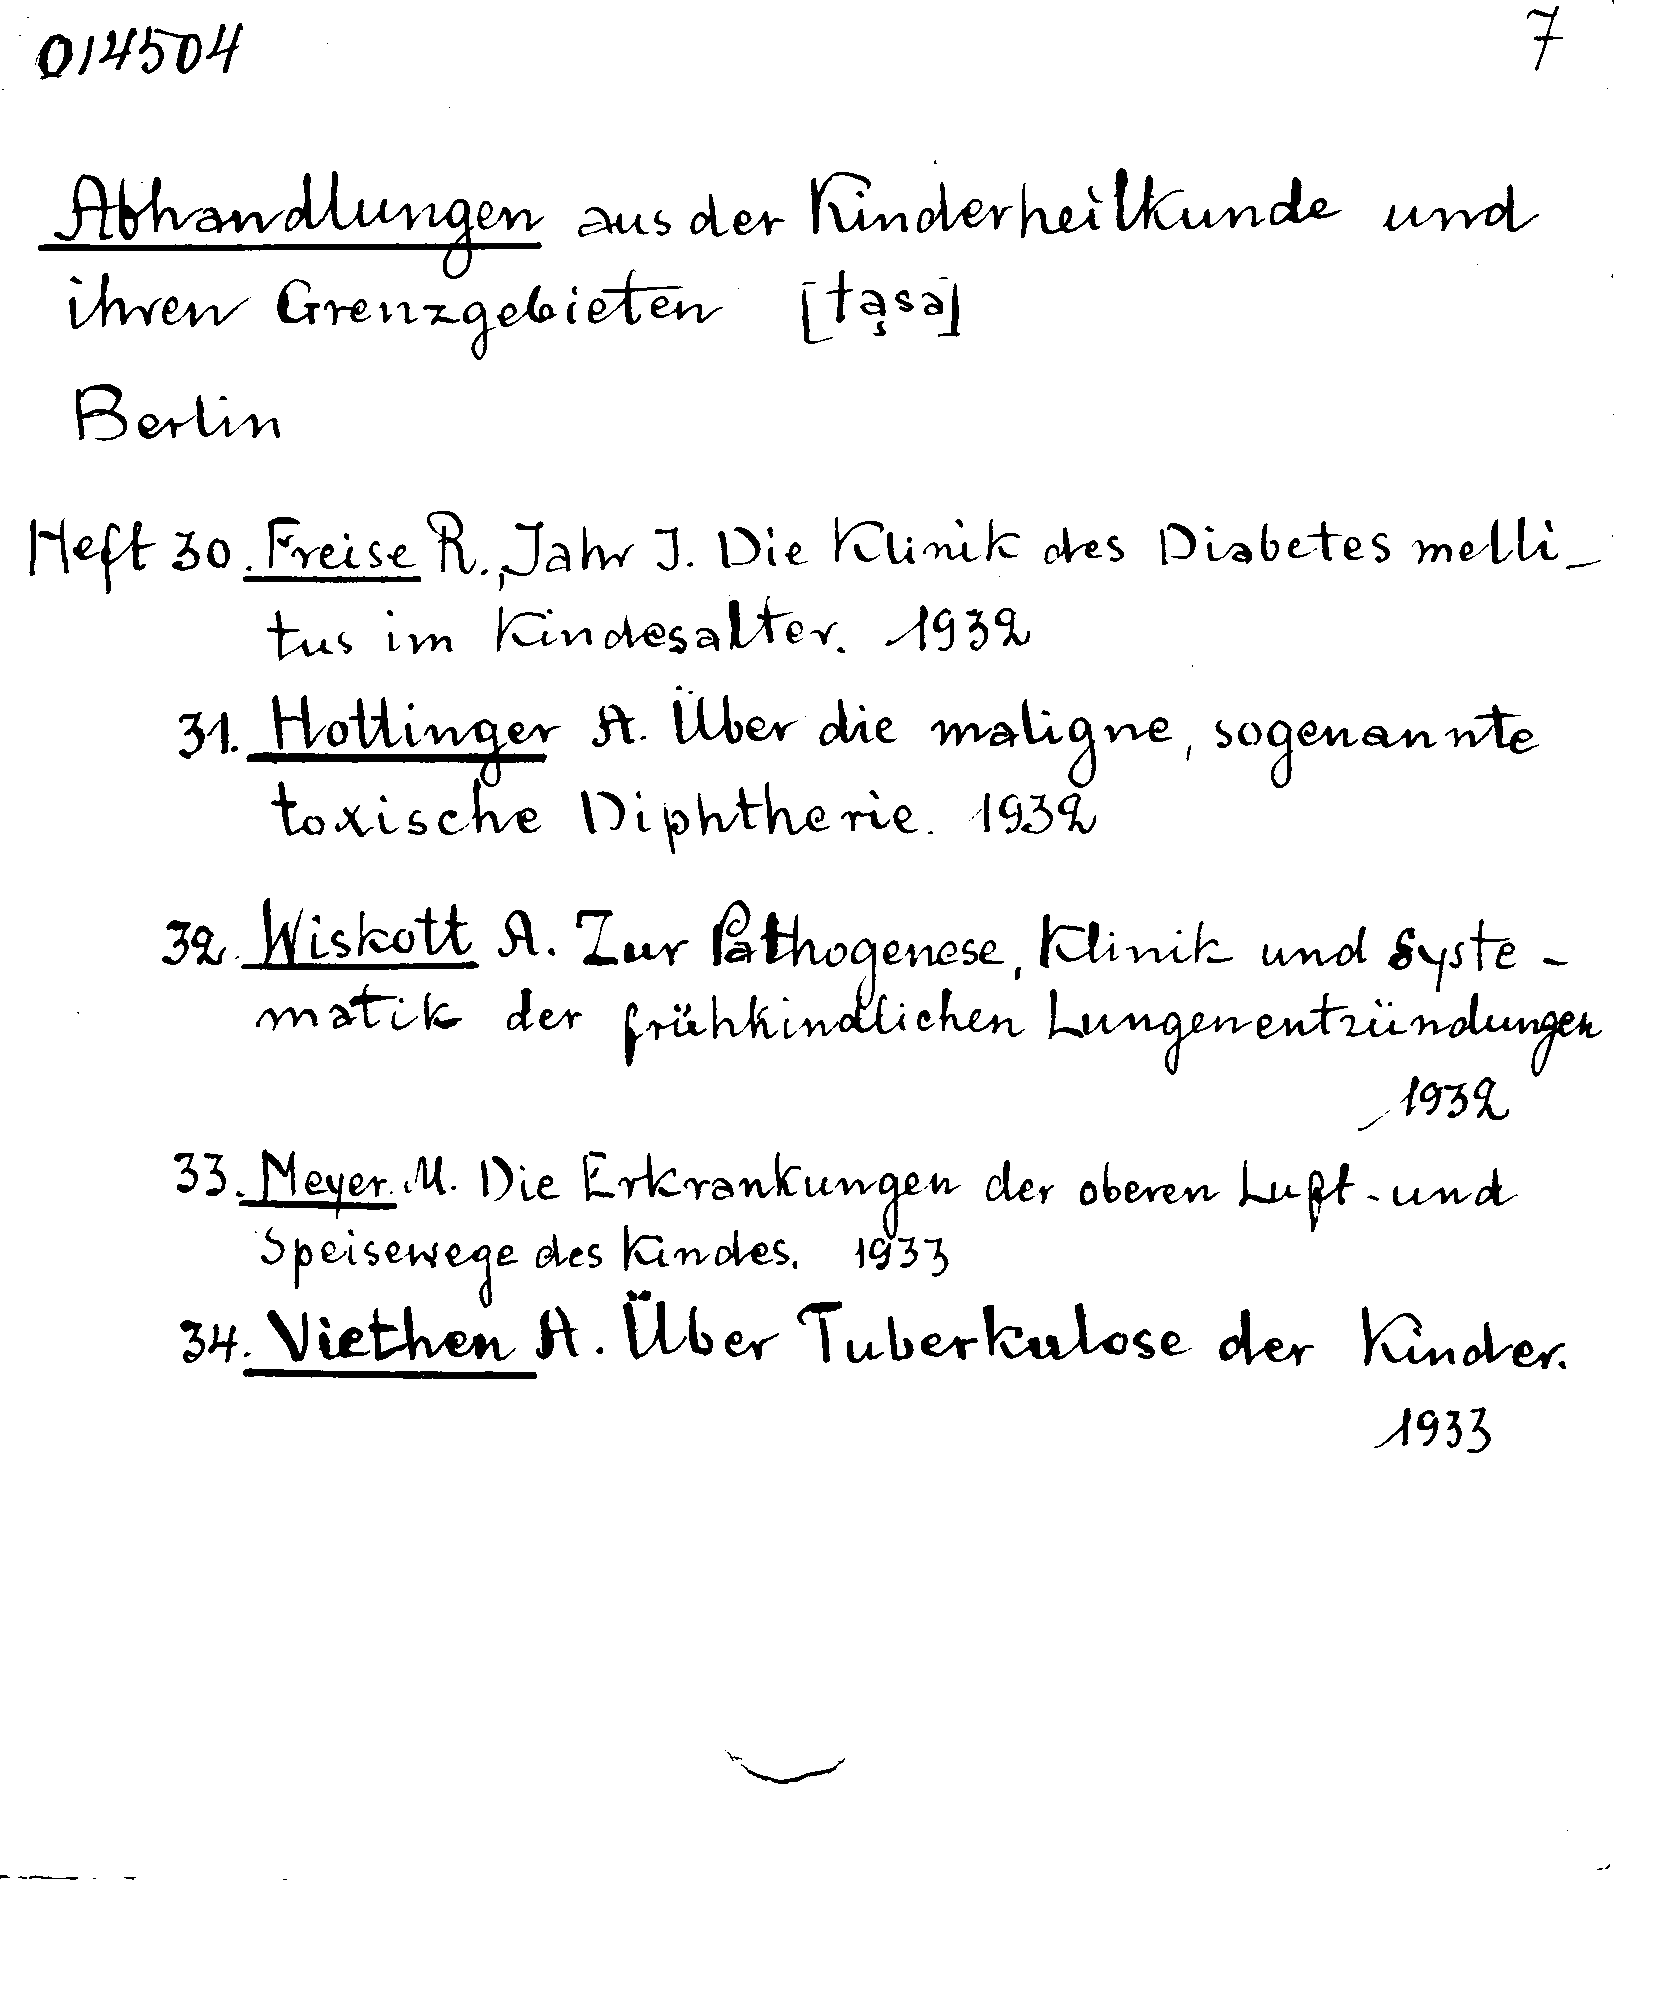 014504
7
Abhandlungen aus der Kinderheilkunde und
ihren Grenzgebieten [tąsa]
Berlin
Heft 30. Freise R., Jahr J. Die Klinik des Diabetes melli-
tus im Kindesalter. 1932
31. Hottinger A. Über die maligne, sogenannte
toxische Diphtherie. 1932
32. Wiskott A. Zur Pathogenese, Klinik und Syste-
matik der frühkindlichen Lungenentzündungen
1932
33. Meyer M. Die Erkrankungen der oberen Luft- und
Speisewege des Kindes. 1933
34. Viethen A. Über Tuberkulose der Kinder.
1933